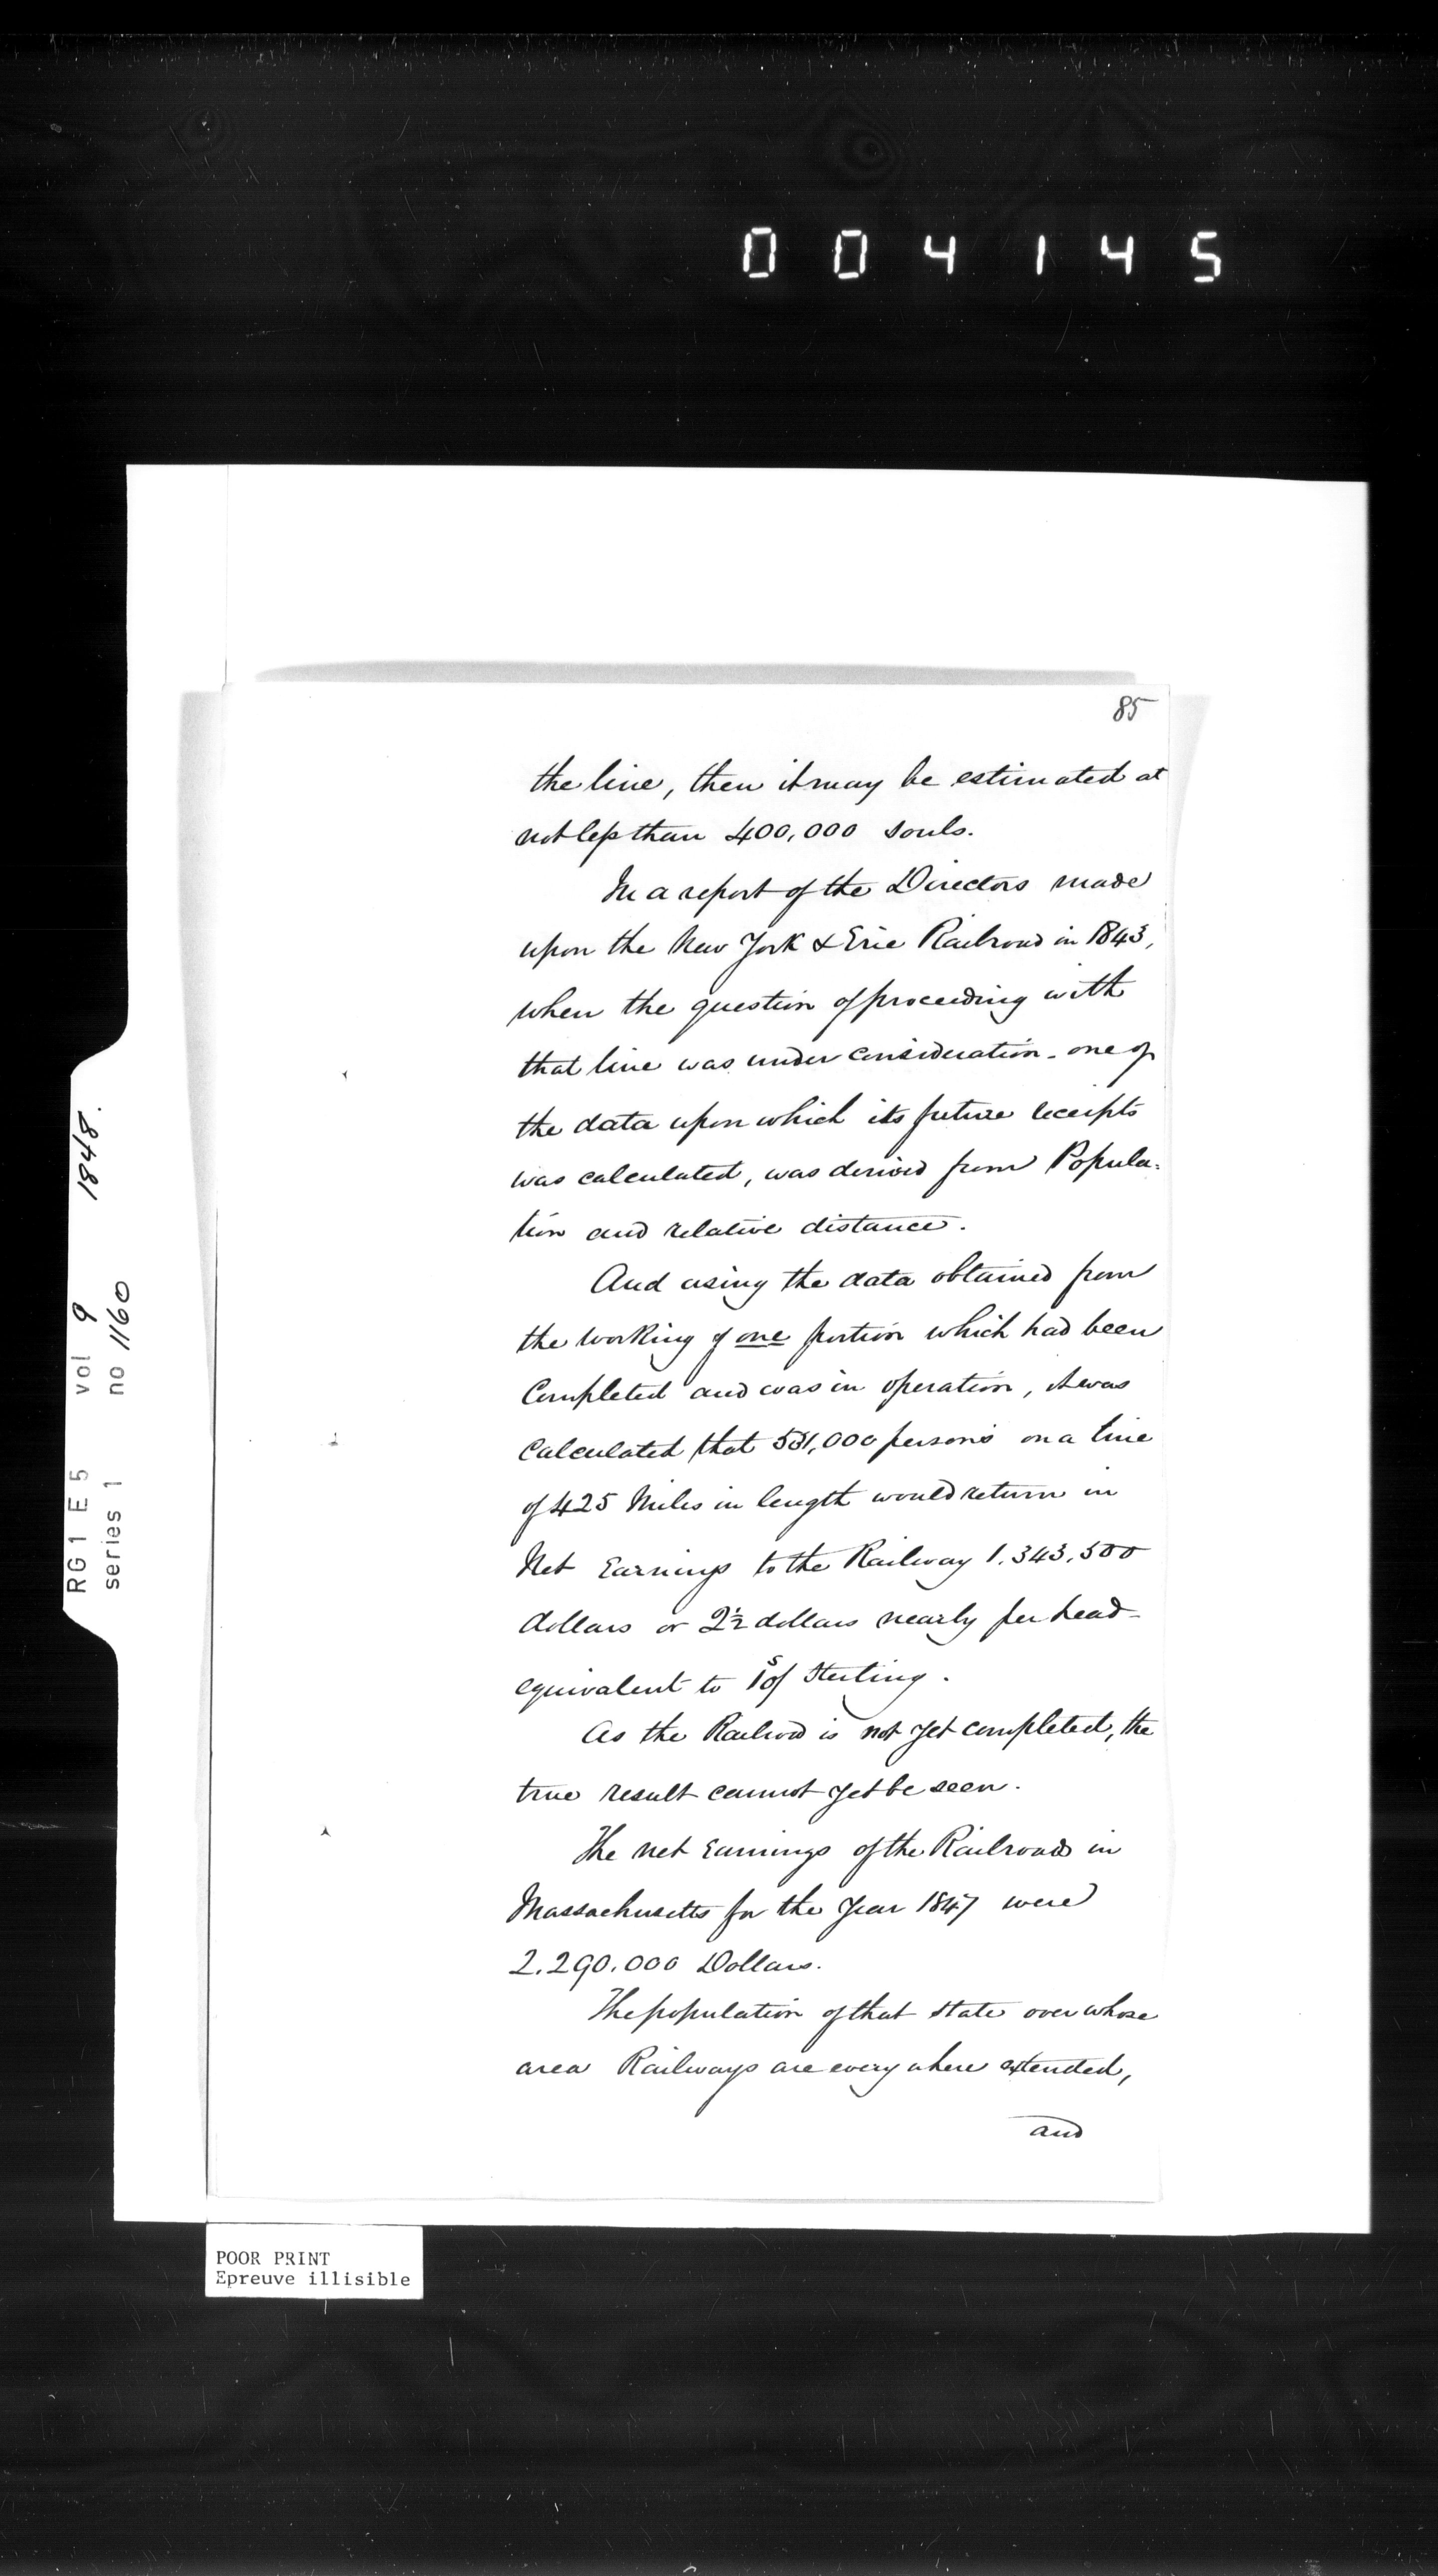 004145
85
the line, then it may be estimated at
not less than 400,000 souls.
In a report of the Directors made
upon the New York & Erie Railroad in 1843,
when the question of proceeding with
that line was under consideration - one of
the data upon which its future receipts
was calculated, was derived from Popula-
tion and relative distance.
And using the data obtained from
the working of one portion which had been
Completed and was in operation, it was
Calculated that 531,000 persons on a line
of 425 Miles in length would return in
Net Earnings to the Railway 1.343.500
dollars or 2½ dollars nearly per head -
equivalent to 10s/ Sterling.
As the Railroad is not yet completed, the
true result cannot yet be seen.
The net Earnings of the Railroads in
Massachusetts for the Year 1847 were
2.290.000 Dollars.
The population of that State over whose
area Railways are every where extended,
and
RG1 E5 vol 9 1848.
series 1 no 1160
POOR PRINT
Epreuve illisible